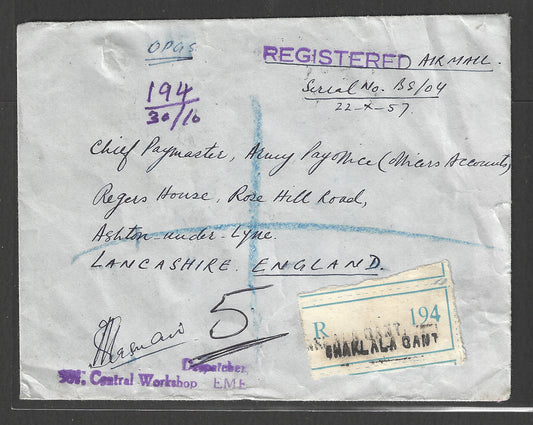 OPGS
REGISTERED AIR MAIL.
Serial No. BS/04
22-X-57
194
30/10
Chief Paymaster, Army Pay Office (Officers Accounts)
Regers House, Rose Hill Road,
Ashton-under-Lyne.
LANCASHIRE. ENGLAND.
5
R 194
CHAKLALA CANT
Despatcher,
Central Workshop EME